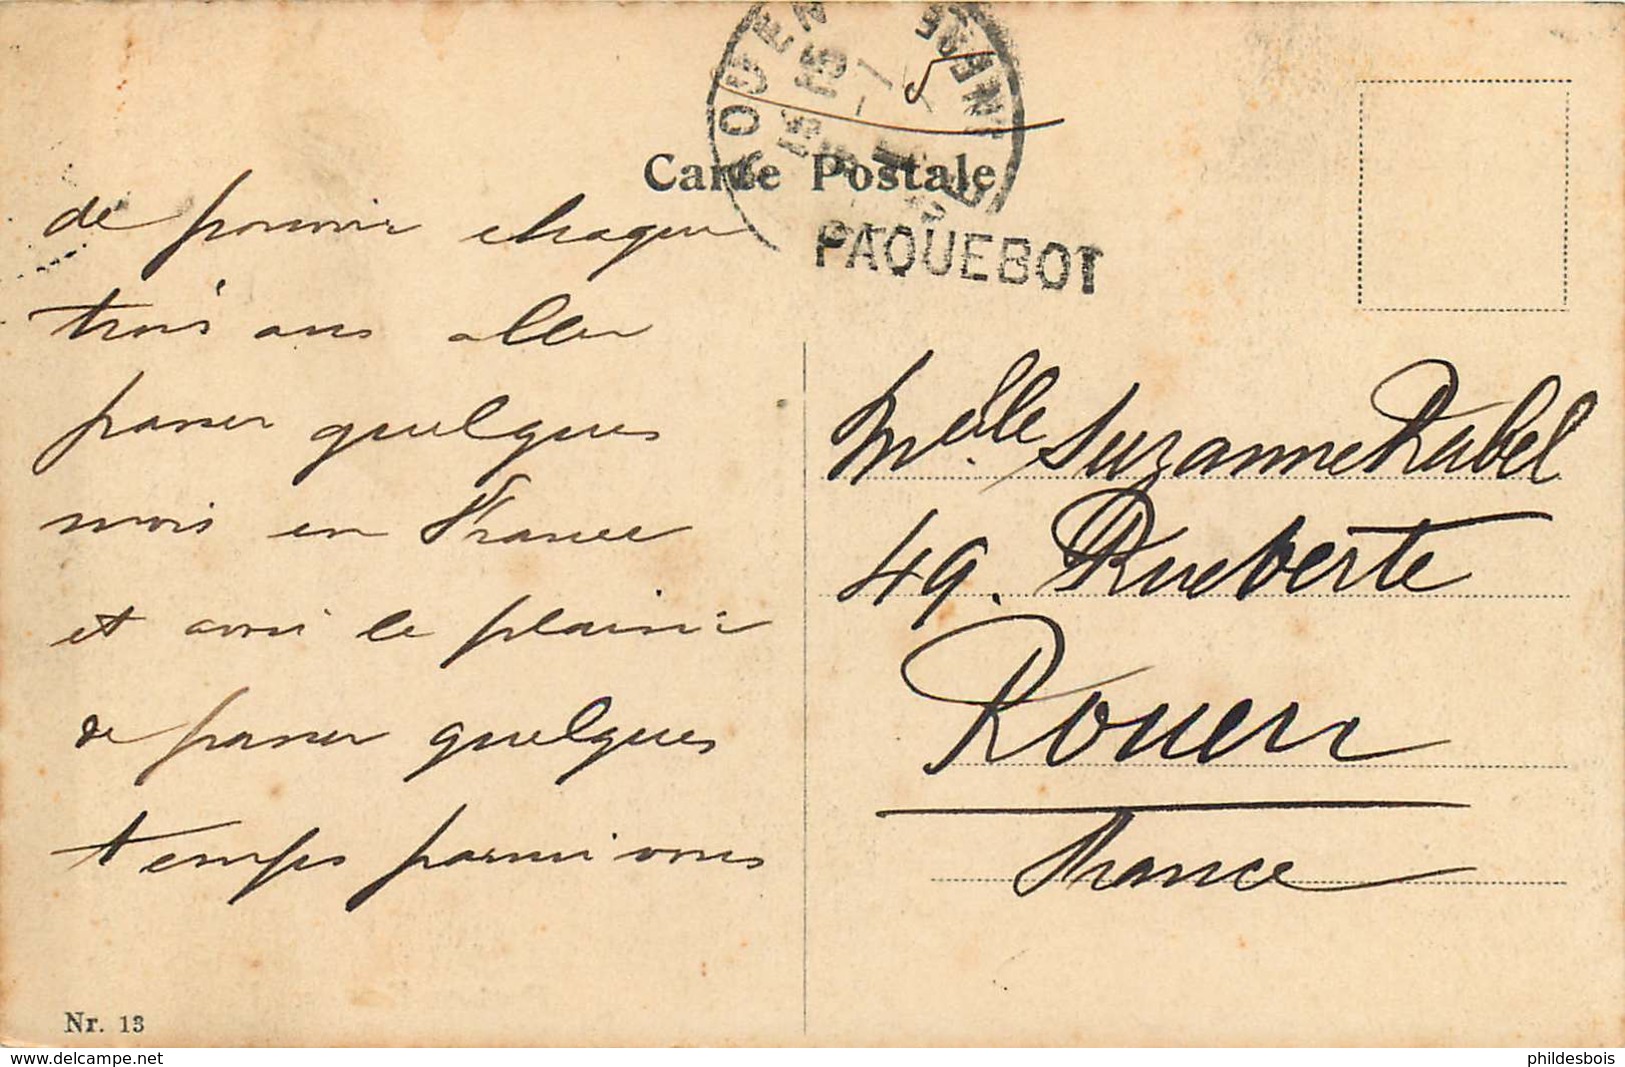 ROUEN GARE
15 15
7
5
Carte Postale
PAQUEBOT
de pouvoir chaque
trois ans aller
passer quelques
mois en France
et avoir le plaisir
de passer quelques
temps parmi vous
Melle Suzanne Rabel
49. Rue Verte
Rouen
France
Nr. 13
www.delcampe.net
phildesbois